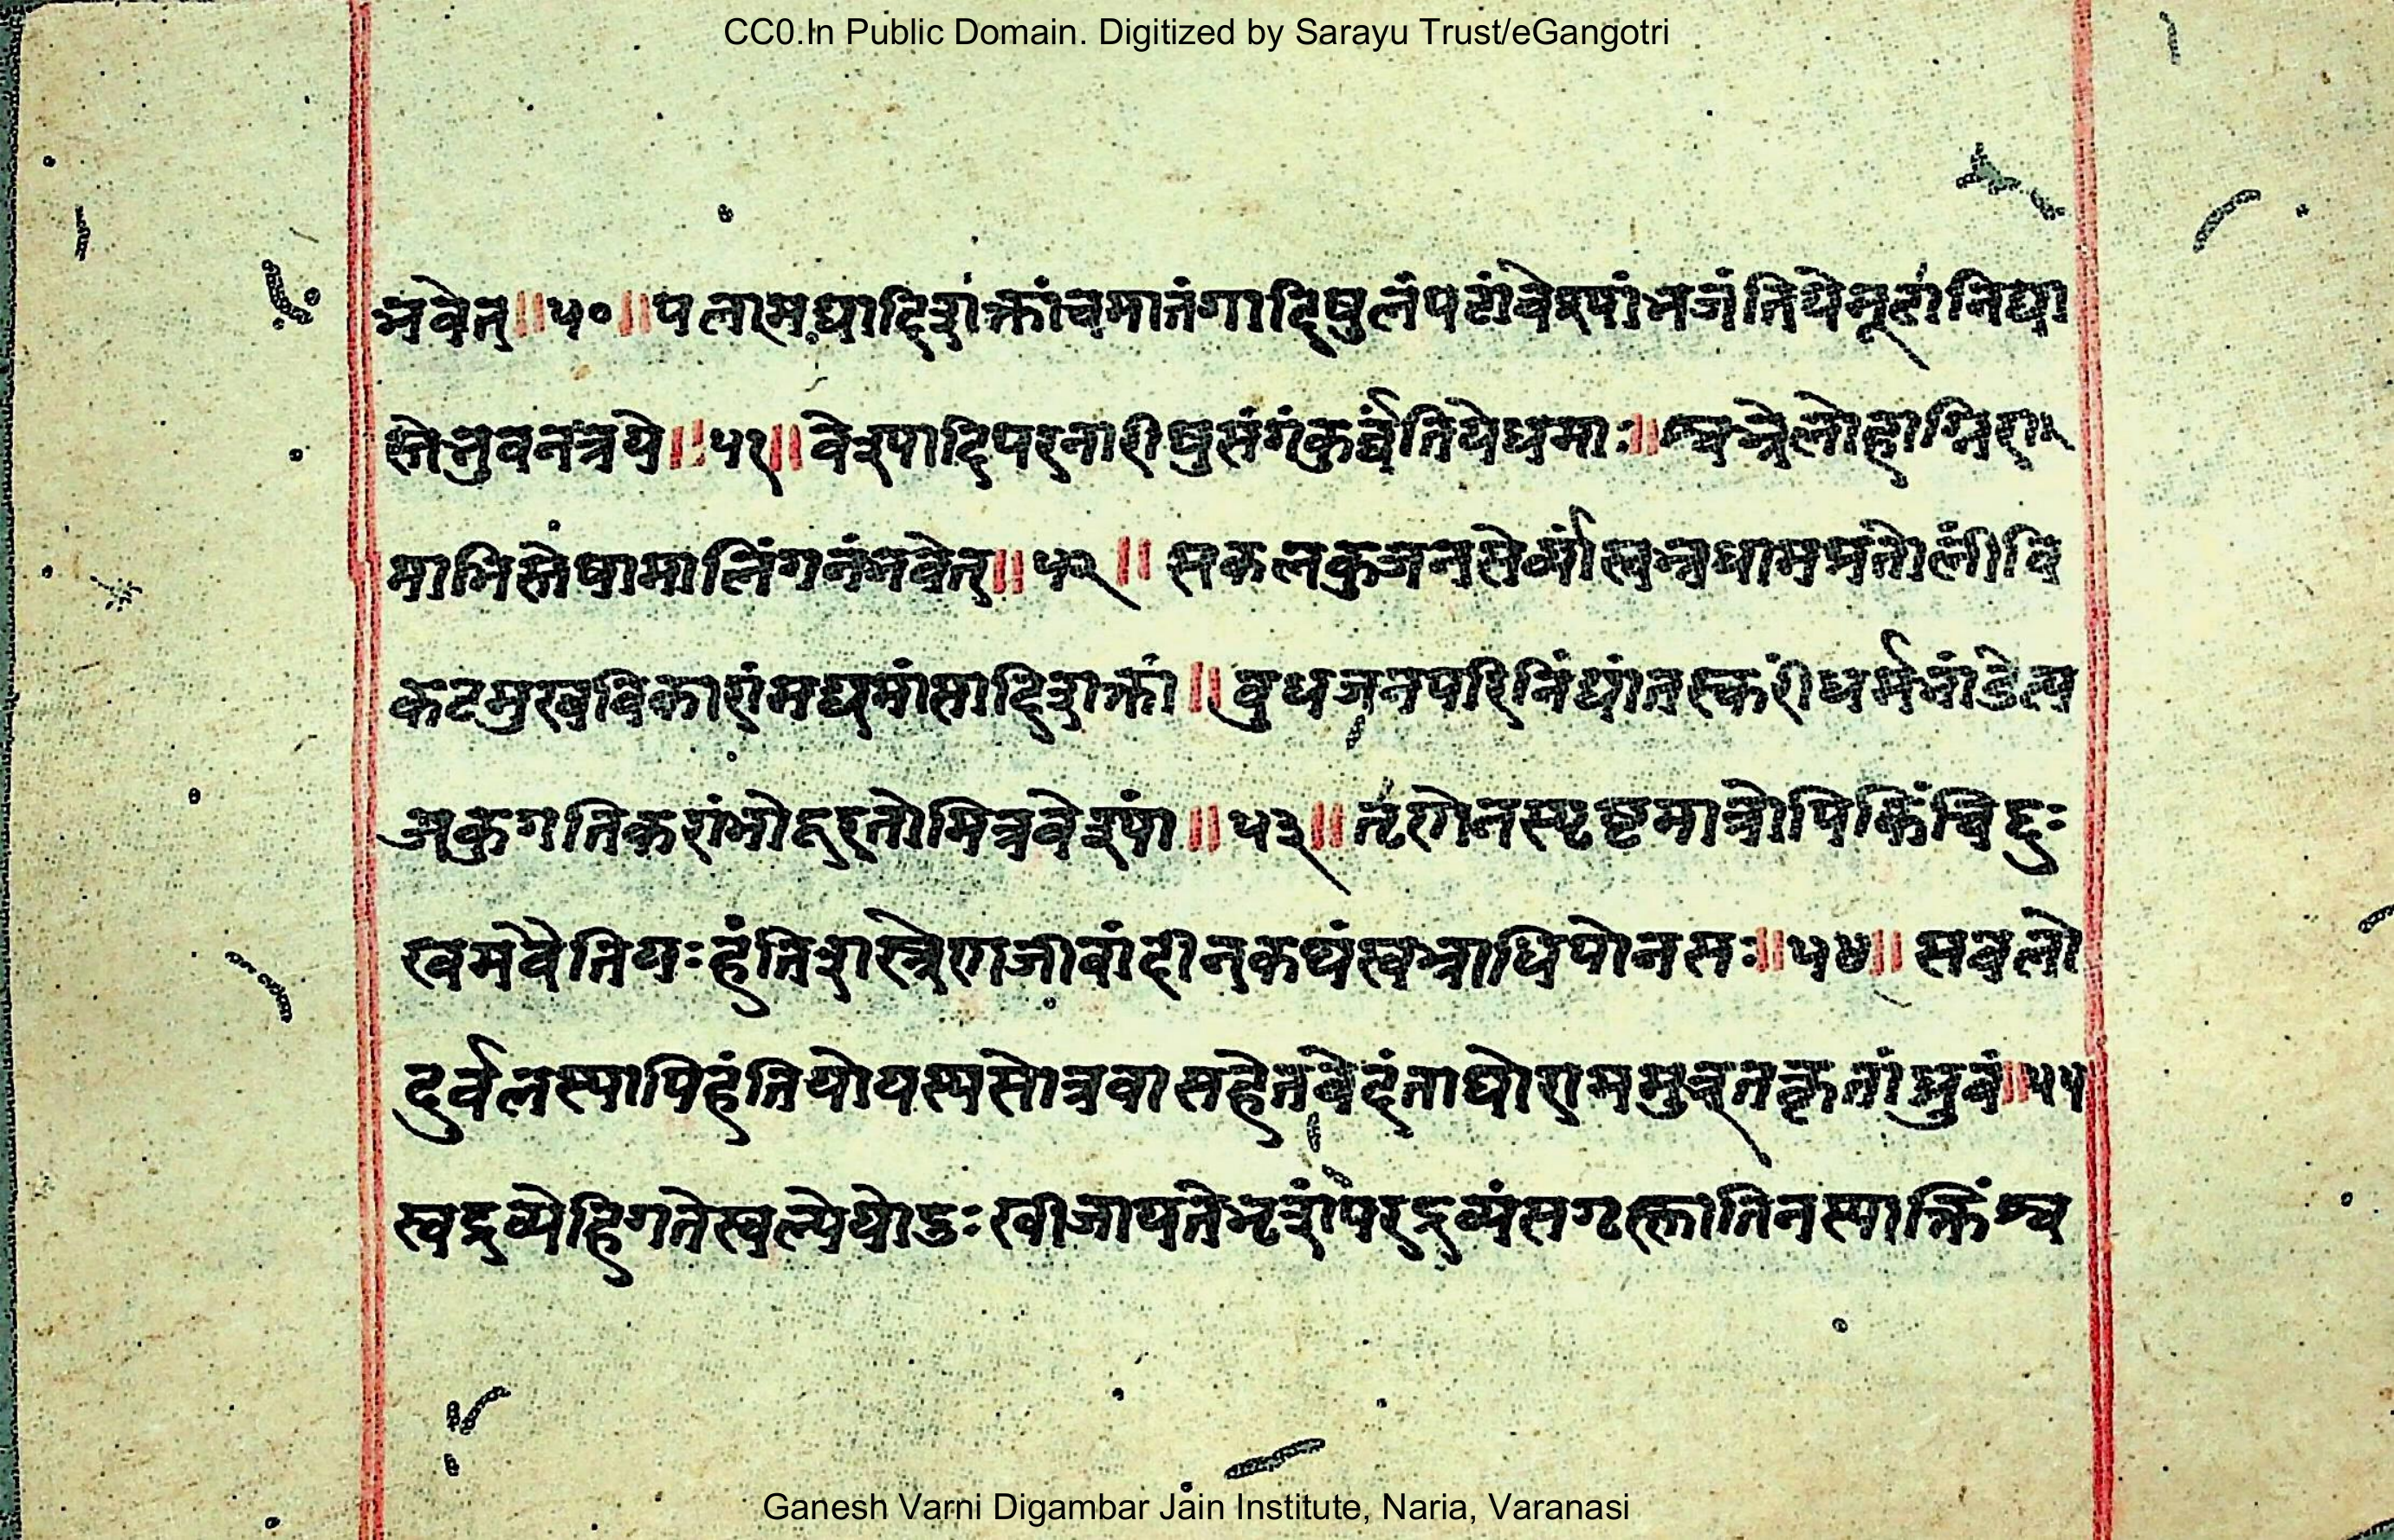 CC0.In Public Domain. Digitized by Sarayu Trust/eGangotri
भवेत्॥५०॥पलामद्यादिशक्तांचमातंगादिषुलंपटांवेश्यांभजंतियेमूढांनिंद्या
स्तेभुवनत्रये॥५१॥वेश्यादिपरनारीषुसंगंकुर्वंतियेधमाः॥श्वभ्रेलोहाग्निरा
माभिस्तेषामालिंगनंभवेत्॥५२॥सकलकुजनसेर्व्यांस्वभ्रधामप्रतोलींवि
कटमुखविकारांमद्यमांसादिशक्तां॥बुधजनपरिनिंद्यांतस्करींधर्मभांडेत्य
जकुगतिकरांभोदूरतोमित्रवेश्यां॥५३॥तृंणेनस्पृष्टमात्रोपिकिंचिद्दुः
खमेवैतियःहंतिशस्त्रेणजीवांदीन्कथंस्वभ्राधिपोनसः॥५४॥सबलो
दुर्बलस्यापिहंतियोयस्यसोत्रवासहेतवेदंताघोरामममुत्रतत्कृतांध्रुवं॥५५
स्वद्रव्येहिगतेस्वल्पेयोदुःखीजायतेभृशंपरद्रव्यंसगृह्णातिनस्यात्किंश्व
Ganesh Varni Digambar Jain Institute, Naria, Varanasi